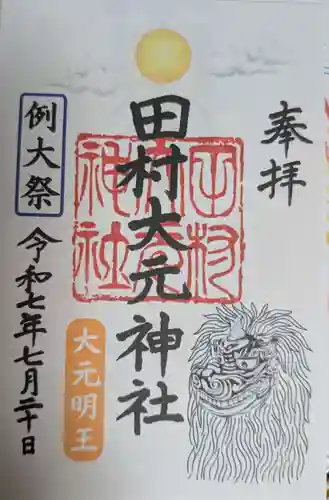 奉拝
田村大元神社
例大祭
令和七年七月二十日
大元明王